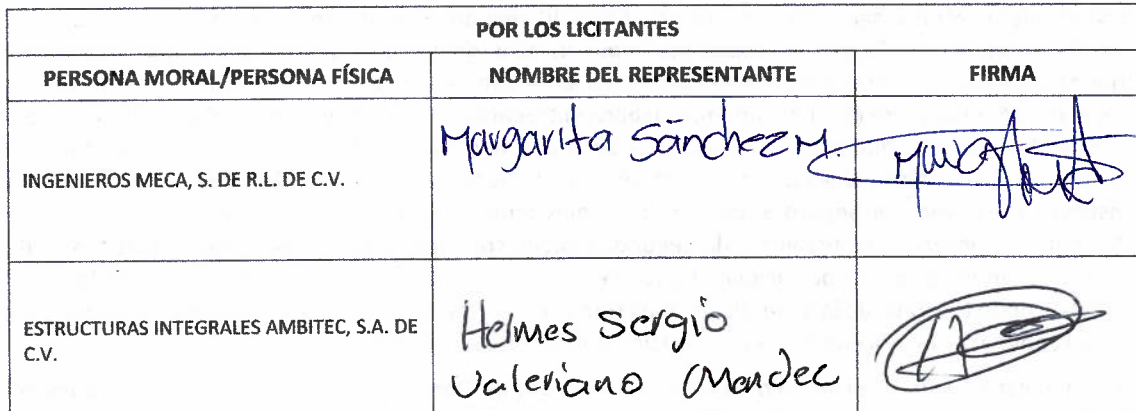 POR LOS LICITANTES
PERSONA MORAL/PERSONA FÍSICA NOMBRE DEL REPRESENTANTE FIRMA
INGENIEROS MECA, S. DE R.L. DE C.V. Margarita Sánchez M.
ESTRUCTURAS INTEGRALES AMBITEC, S.A. DE
C.V.
Helmes Sergio
Valeriano Mendec